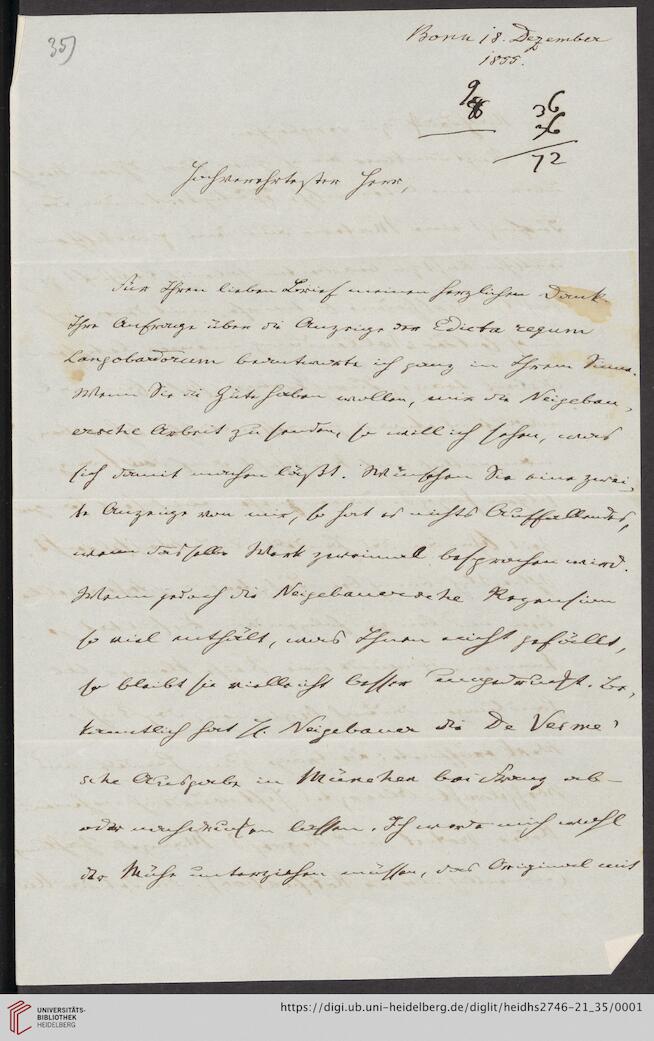 35)
Bonn 18. Dezember
1855.
9
36
36
72
Hochverehrtester Herr,
Für Ihren lieben Brief meinen herzlichen Dank.
Ihre Anfrage über die Anzeige der Edicta regum
Langobardorum beantworte ich ganz in Ihrem Sinne.
Wenn Sie die Güte haben wollen, mir die Neigebau,
ersche Arbeit zu senden, so will ich sehen, was
sich damit machen läßt. Wünschen Sie eine zwei,
te Anzeige von mir, so hat es nichts Auffallendes,
wenn dasselbe Werk zweimal besprochen wird.
Wenn jedoch die Neigebauersche Rezension
so viel enthält, was Ihnen nicht gefällt,
so bleibt sie vielleicht besser ungedruckt. Be,
kanntlich hat H. Neigebauer die De Vesme'
sche Ausgabe in München bei Franz ab-
oder nachdrucken lassen. Ich werde mich wohl
der Mühe unterziehen müssen, das Original mit
UNIVERSITÄTS-
BIBLIOTHEK
HEIDELBERG
https://digi.ub.uni-heidelberg.de/diglit/heidhs2746-21_35/0001